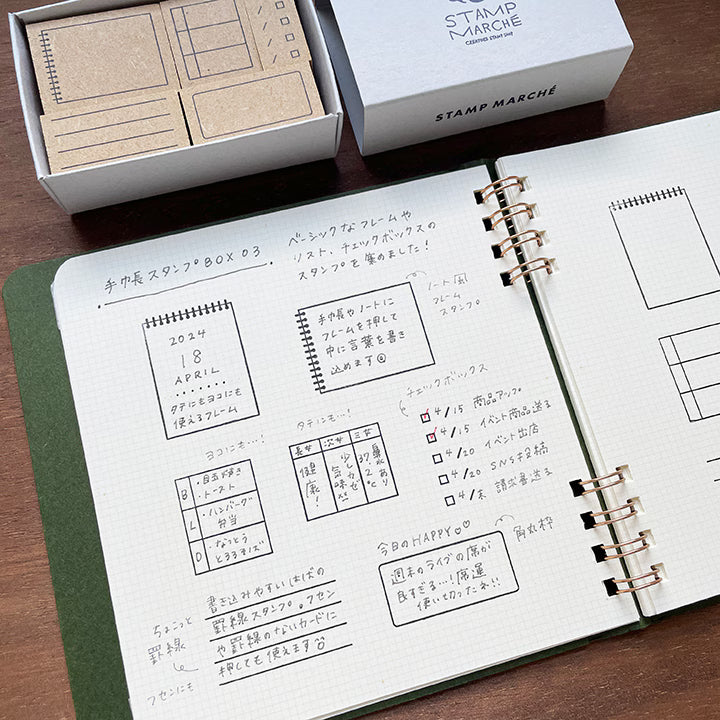 STAMP
MARCHÉ
CREATORS STAMP SHOP
STAMP MARCHÉ
手帳スタンプBOX 03
ベーシックなフレームや
リスト、チェックボックスの
スタンプを集めました！
2024
18
APRIL
タテにもヨコにも
使えるフレーム
手帳やノートに
フレームを押して
中に言葉を書き
込めます
ノート風
フレーム
スタンプ
チェックボックス
4/15 商品アップ
4/15 イベント商品送る
4/20 イベント出店
4/20 SNS投稿
4/末 請求書送る
ヨコにも…！
B ・目玉焼き
・トースト
L ・ハンバーグ
弁当
D ・なっとう
タテにも…！
長女 次女 三女
健康！
少しカゼ
気味
鼻水あり
37.2℃
今日のHAPPY♡♡
角丸枠
週末のライブの席が
良すぎる…！席運
使い切ったネ!!
ちょこっと
罫線
フセンにも
書き込みやすいはばの
罫線スタンプ。フセン
や罫線のないカードに
押しても使えます